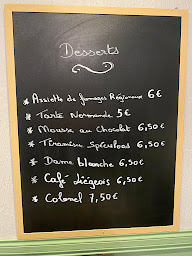 Desserts
* Assiette de fromages Régionaux 6€
* Tarte Normande 5€
* Mousse au Chocolat 6,50€
* Tiramisu Spéculoos 6,50€
* Dame blanche 6,50€
* Café Liégeois 6,50€
* Colonel 7,50€